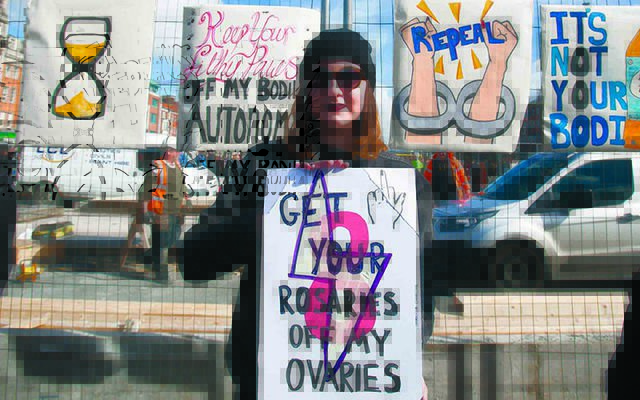 Keep Your
filthy Paws
OFF MY BODILY
AUTONOMY
REPEAL
IT'S
NOT
YOUR
BODI
GET
YOUR
ROSARIES
OFF MY
OVARIES